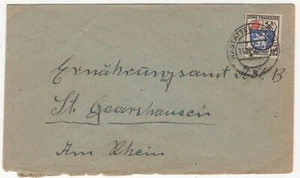 ZONE FRANÇAISE
Ernährungsamt Abt. B
St. Goarshausen
Am Rhein